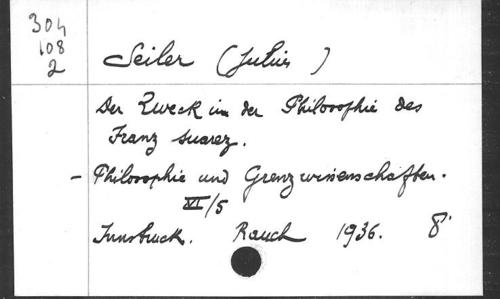 304
108
2
Seiler (Julius)
Der Zweck in der Philosophie des
Franz Suarez.
- Philosophie und Grenzwissenschaften.
VI/5
Innsbruck. Rauch 1936. 8°